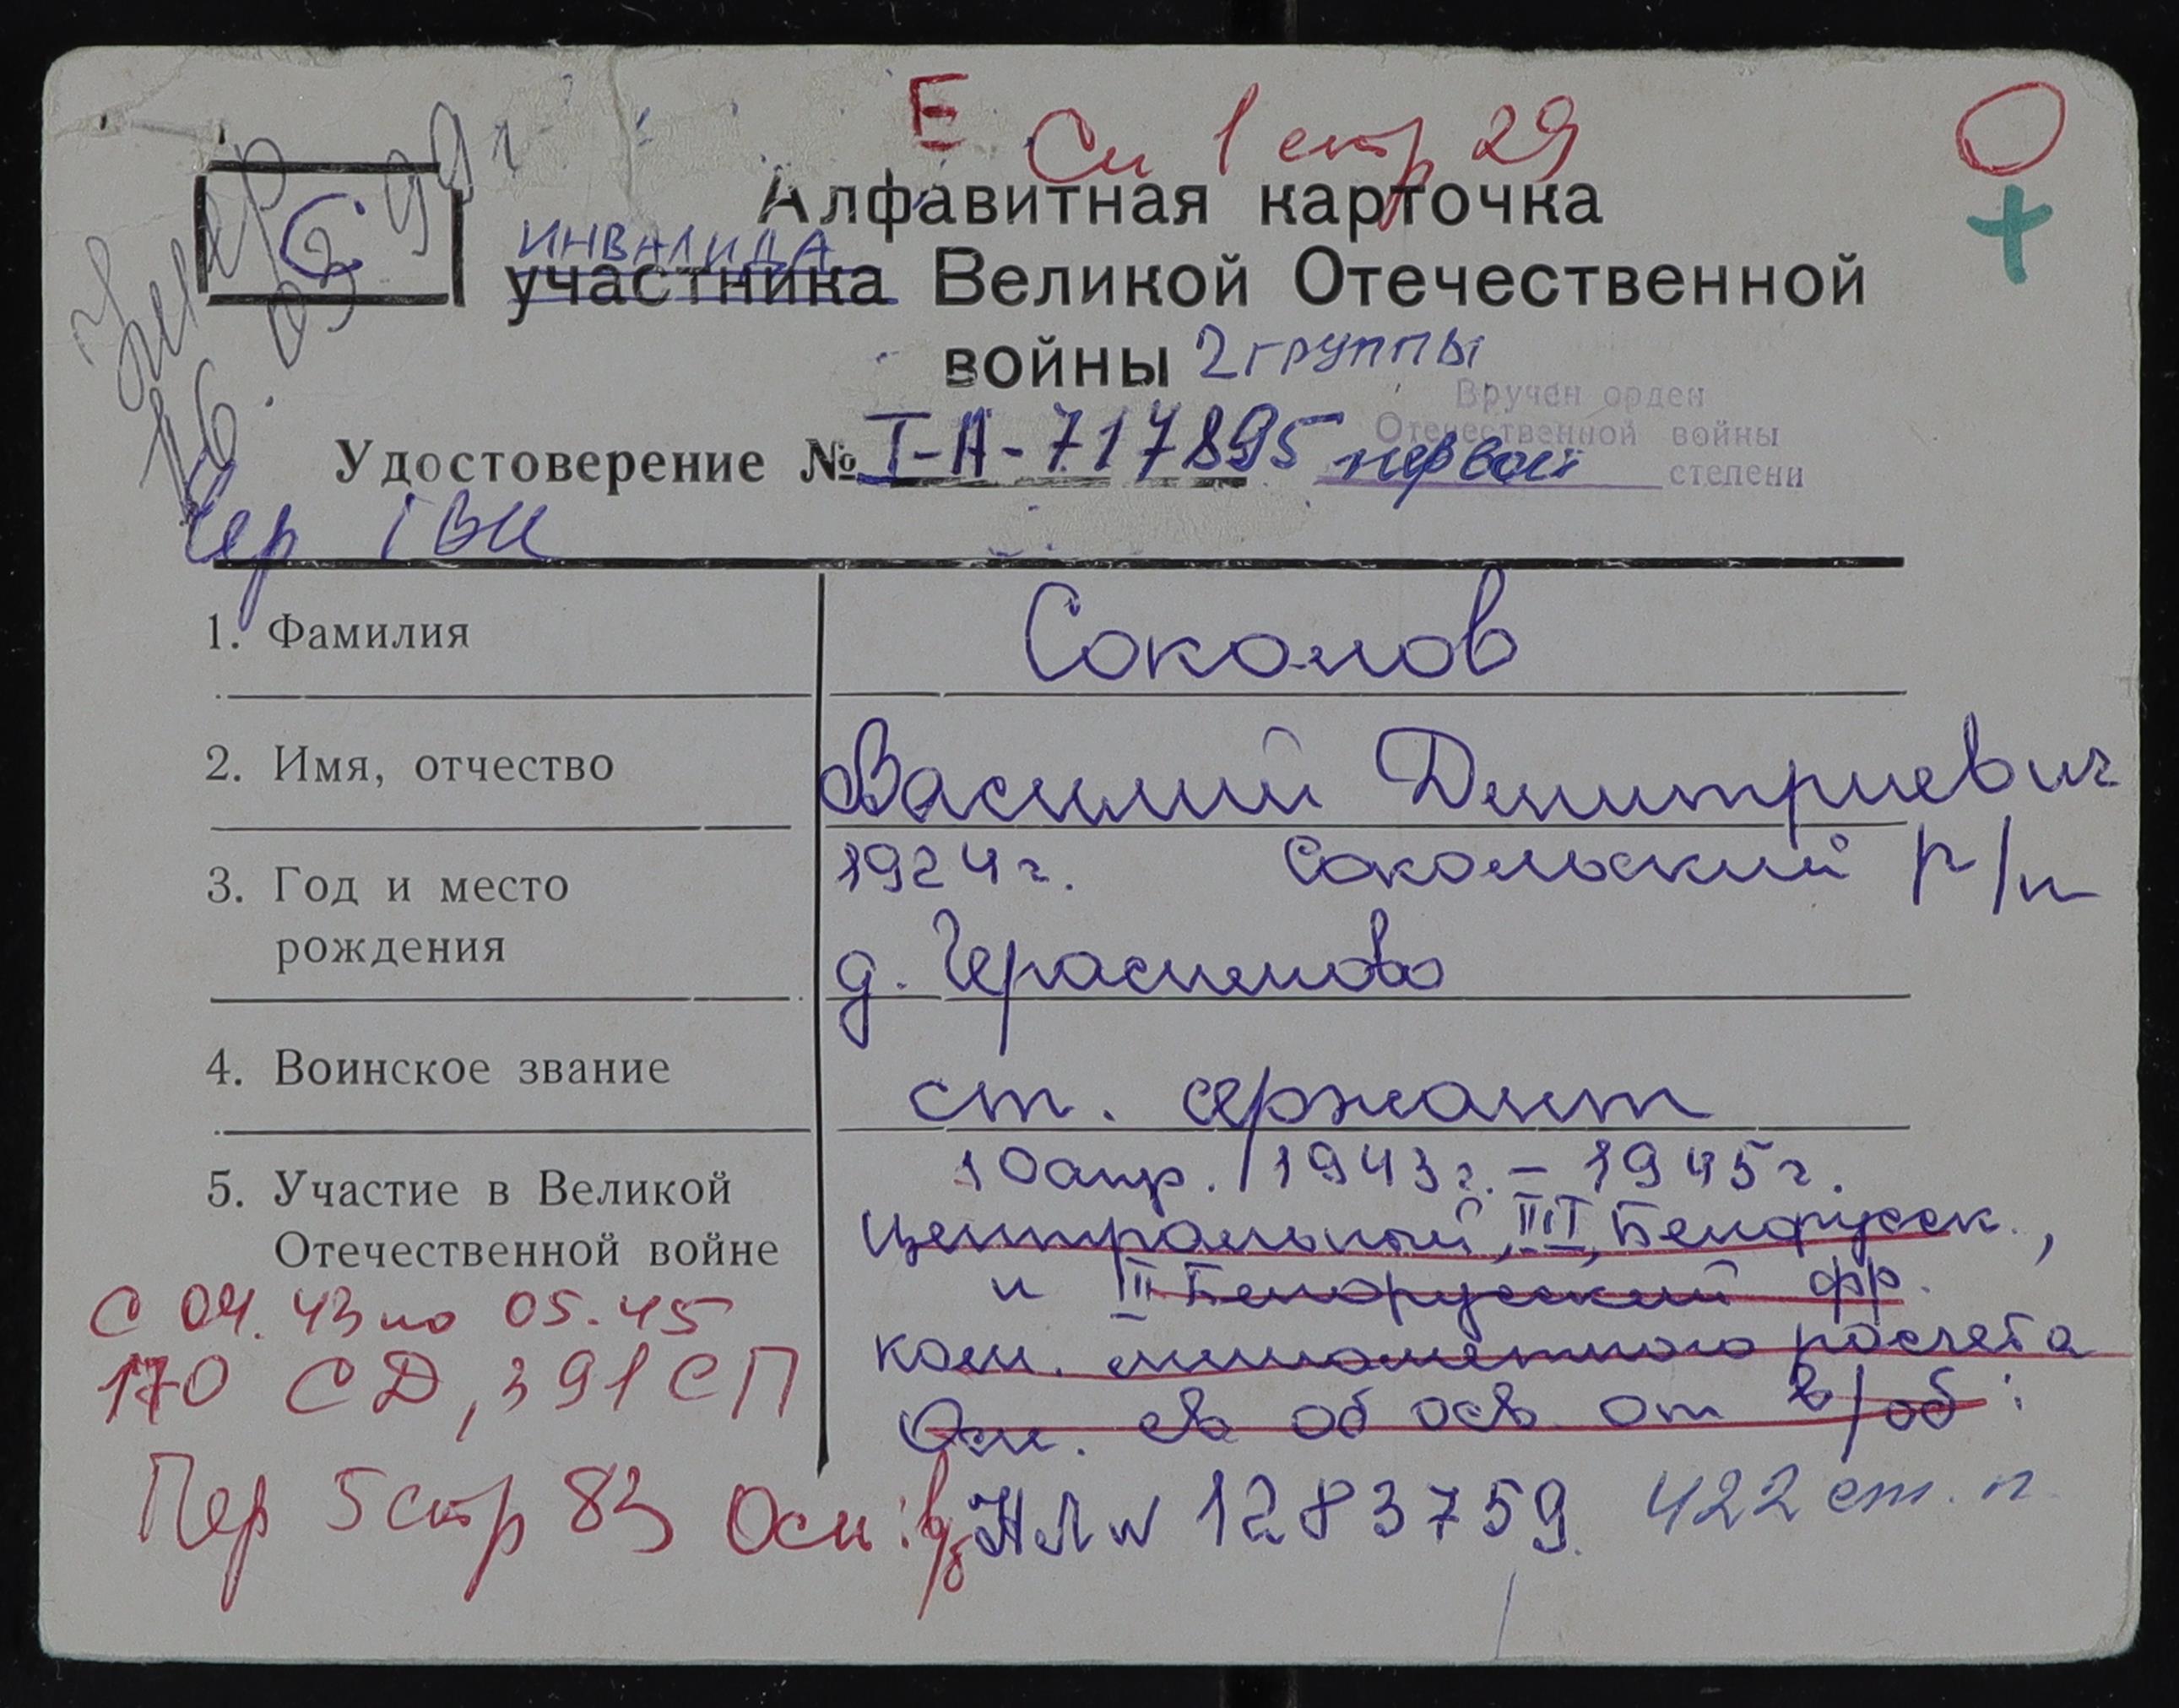 Е Сп 1 стр 29
Умер 16.03 99 г
С
Алфавитная карточка
инвалида
участника Великой Отечественной
войны 2 группы
Вручен орден
Отечественной войны
первой степени
Удостоверение № Т-А-717895
1. Фамилия Соколов
2. Имя, отчество Василий Дмитриевич
3. Год и место 1924 г. Сокольский р/н
рождения д. Герасимово
4. Воинское звание ст. сержант
5. Участие в Великой 10 апр. 1943 г. – 1945 г.
Отечественной войне Центральный, III Белорусск.,
и III Белорусский фр.
с 04.43 по 05.45
ком. минометного расчета
170 СД, 391 СП
Осн. св об осв от в/об:
Пер 5 стр 83 Осн: в/б НЛ № 1283759 422 ст. п.